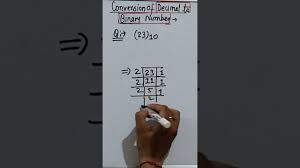 Conversion of Decimal to
Binary Number →
Q:- (23)10
⇒ 2 23 1
2 11 1
2 5 1
2